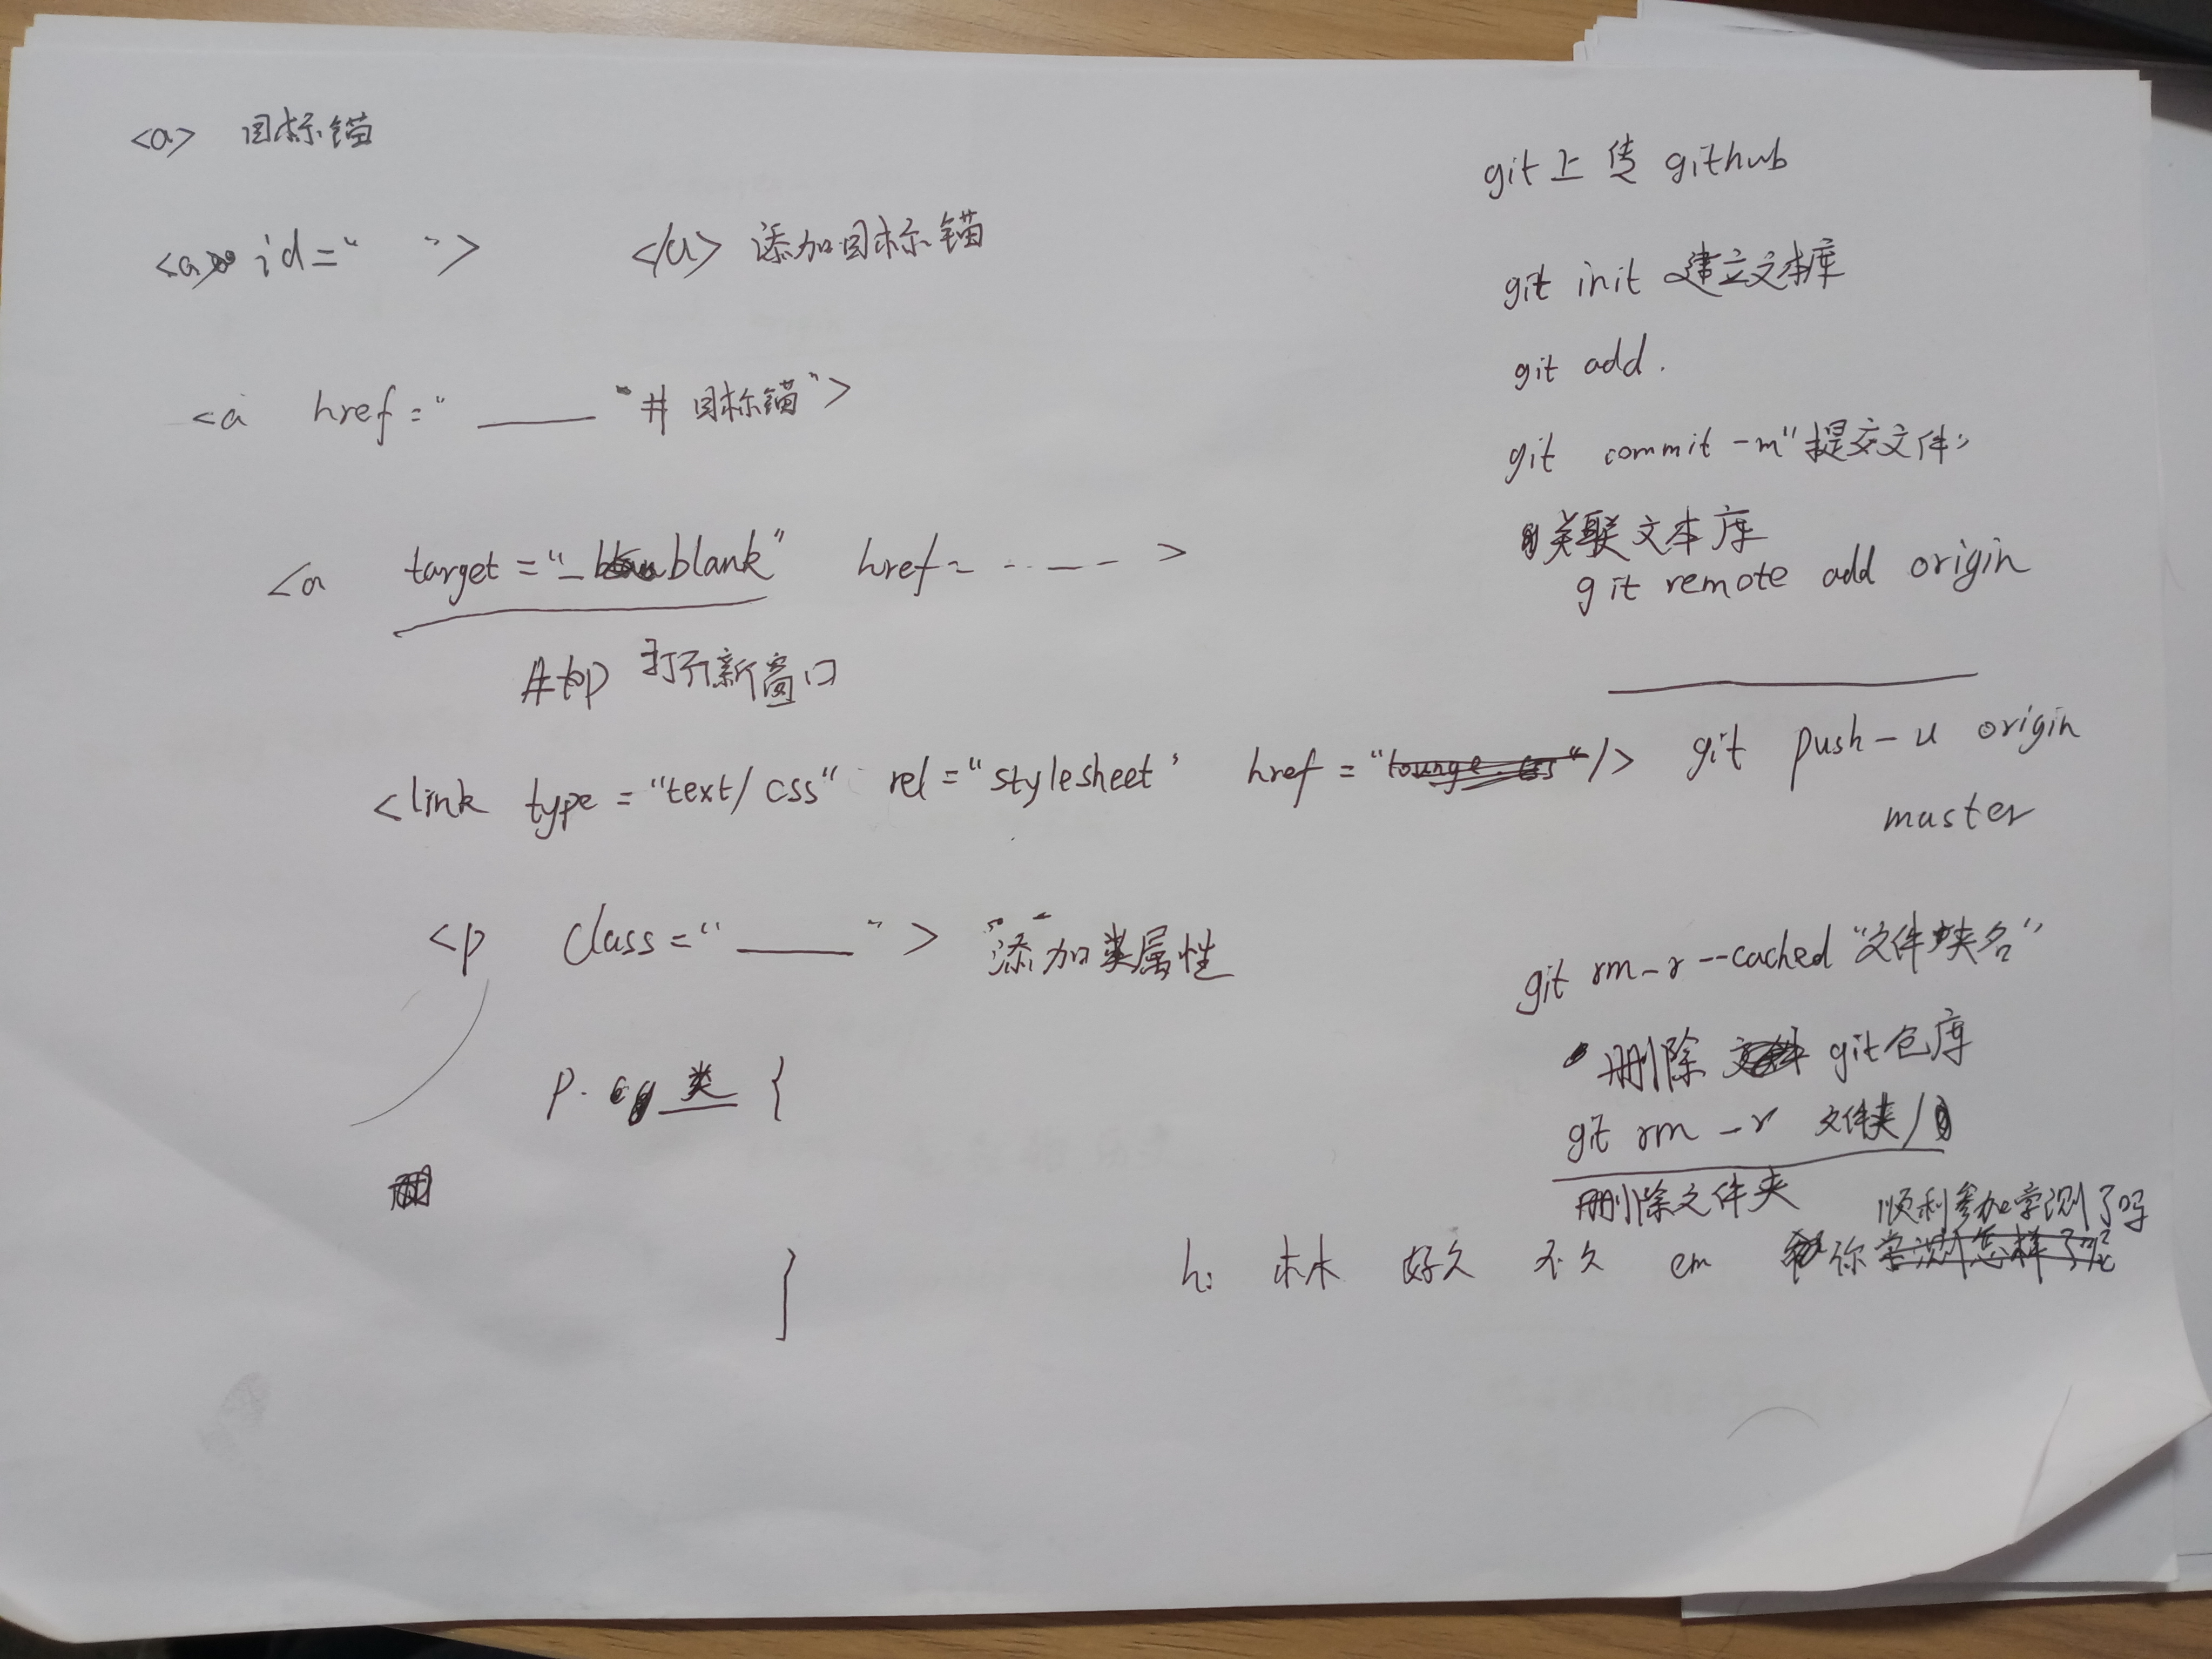 <a> 目标锚
<a id=“ ”> </a> 添加目标锚
<a href=“ ____ ”# 目标锚”>
<a target=“_blank” href= ----- >
#top 打开新窗口
<link type=“text/css“ rel=“stylesheet’ href=“lounge.css“/>
<p class=“____”> 添加类属性
p. 类 {
}
git上传 github
git init 建立文本库
git add.
git commit -m“提交文件”
关联文本库
git remote add origin
____
git push-u origin
master
git rm-r --cached “文件夹名”
删除 git仓库
git rm -r 文件夹/
删除文件夹
顺利参加学测了吗
hi 林 好久 不久 em 你学测怎样了呢